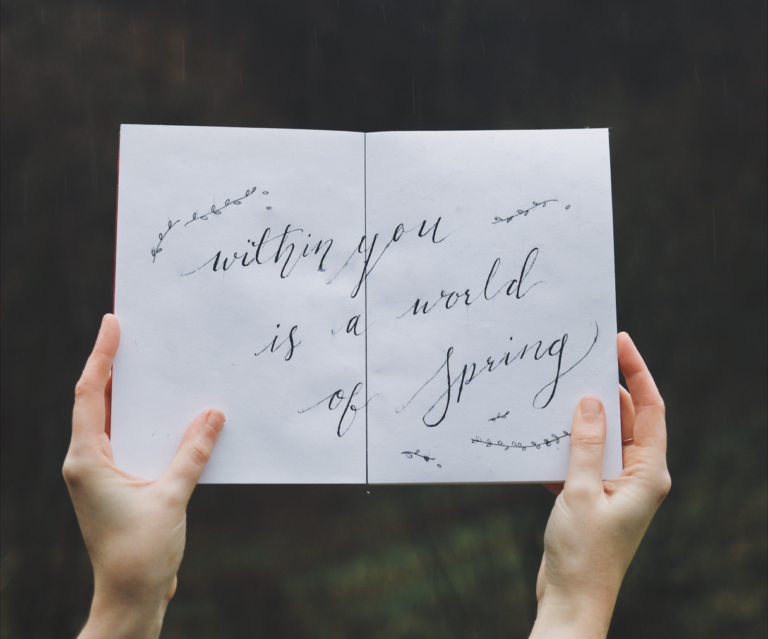 within you
is a world
of Spring